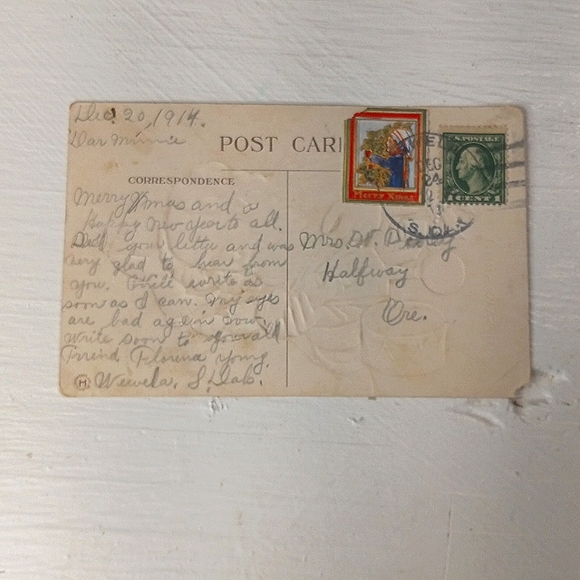 Dec. 20, 1914.
Dar Minnie
POST CAR
CORRESPONDENCE
Merry Xmas and a
Happy New Year to all.
your letter and was
very glad to hear from
you. Will write as
soon as I can. My eyes
are bad again now
Write soon to your all
Frriend Florena Young.
H Wewela, S. Dak.
Mrs. D.
Halfway
Ore.
Merry Xmas
DEC
24
S.DAK.
U.S. POSTAGE
1 CENT 1